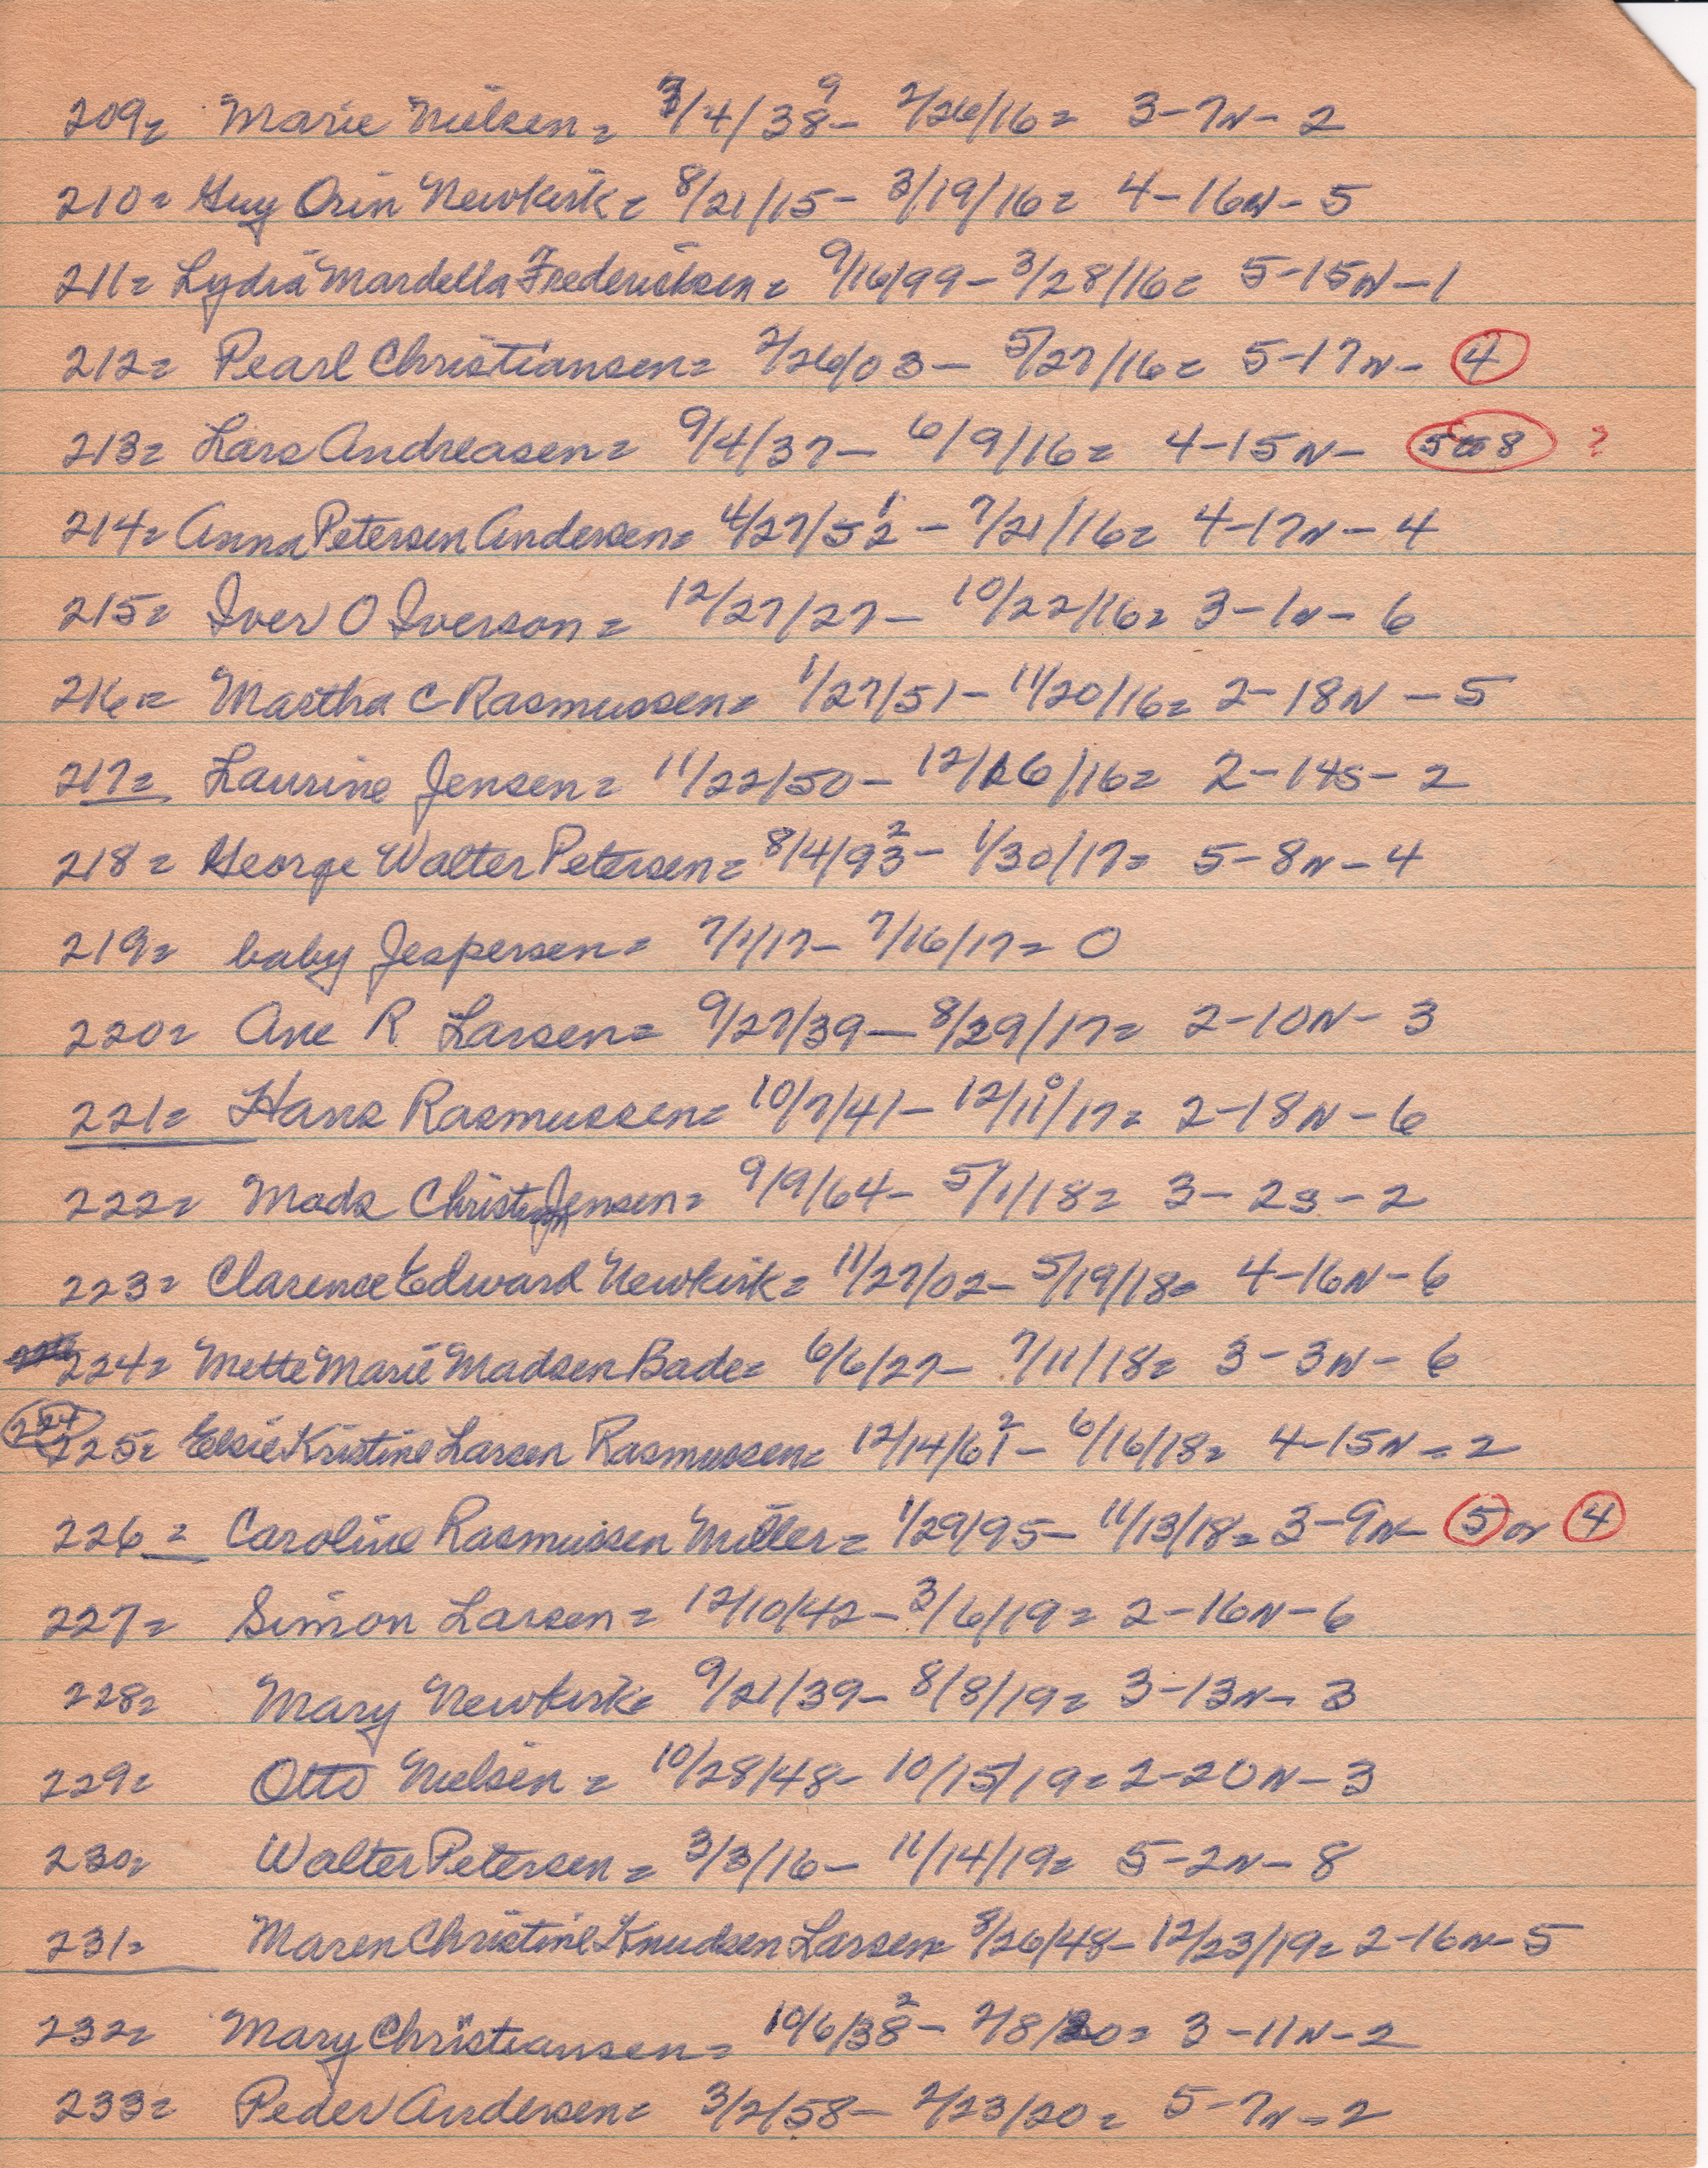 209= Marie Nielsen = 3/4/38 9 - 2/26/16 = 3-7N-2
210= Guy Orin Newkirk = 8/21/15 - 3/19/16 = 4-16N-5
211= Lydia Mardella Frederiksen = 9/16/99 - 3/28/16 = 5-15N-1
212= Pearl Christiansen = 2/26/03 - 5/27/16 = 5-17N- 4
213= Lars Andreasen = 9/4/37 - 6/9/16 = 4-15N- 5 to 8 ?
214= Anna Petersen Andersen = 4/27/52 1 - 7/21/16 = 4-17N-4
215= Iver O Iverson = 12/27/27 - 10/22/16 = 3-1N-6
216= Martha C Rasmussen = 1/27/51 - 11/20/16 = 2-18N-5
217= Laurine Jensen = 11/22/50 - 12/16/16 = 2-14S-2
218= George Walter Petersen = 8/4/93 2 - 1/30/17 = 5-8N-4
219= baby Jespersen = 7/1/17 - 7/16/17 = 0
220= Ane R Larsen = 9/27/39 - 8/29/17 = 2-10N-3
221= Hans Rasmussen = 10/7/41 - 12/11 0/17 = 2-18N-6
222= Mads Christen Jensen = 9/9/64 - 5/1/18 = 3-2S-2
223= Clarence Edward Newkirk = 11/27/02 - 5/19/18 = 4-16N-6
224= Mette Marie Madsen Bade = 6/6/27 - 7/11/18 = 3-3N-6
225= Elsie Kristine Larsen Rasmussen = 12/14/61 2 - 6/16/18 = 4-15N=2
226= Caroline Rasmussen Miller = 1/29/95 - 11/13/18 = 3-9N- 5 or 4
227= Simon Larsen = 12/10/42 - 3/6/19 = 2-16N-6
228= Mary Newkirk = 9/21/39 - 8/8/19 = 3-13N-3
229= Otto Nielsen = 10/28/48 - 10/15/19 = 2-20N-3
230= Walter Petersen = 3/3/16 - 11/14/19 = 5-2N-8
231= Maren Christine Knudsen Larsen 8/26/48 - 12/23/19 = 2-16N-5
232= Mary Christiansen = 10/6/38 2 - 2/8/20 = 3-11N-2
233= Peder Andersen = 3/2/58 - 2/23/20 = 5-7N=2